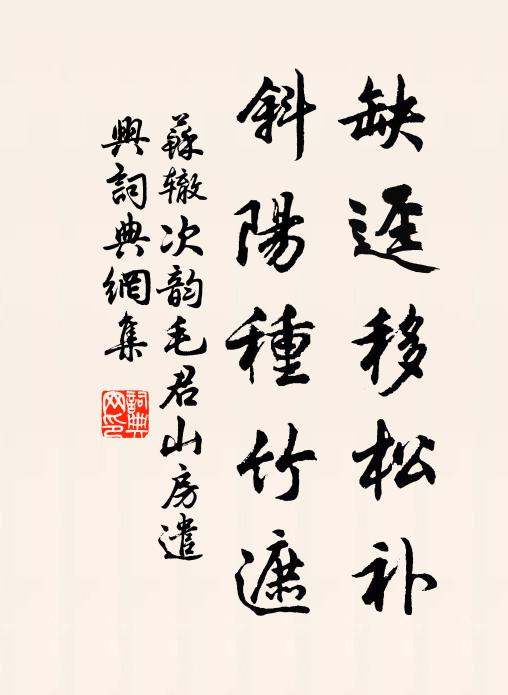 缺逕移松补
斜陽種竹遮
蘇辙次韵毛君山房遣
興詞典網集
詞典
网印